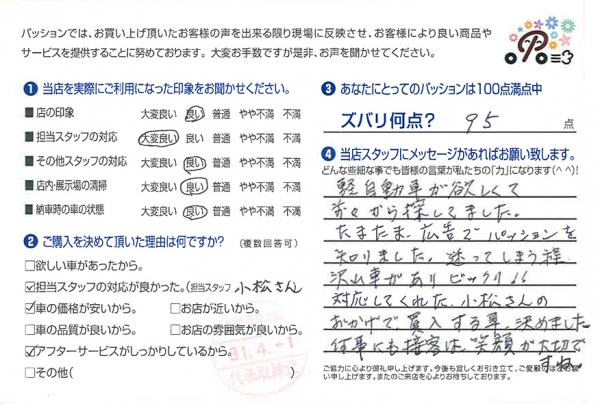 パッションでは、お買い上げ頂いたお客様の声を出来る限り現場に反映させ、お客様により良い商品や
サービスを提供することに努めております。大変お手数ですが是非、お声を聞かせてください。
❶ 当店を実際にご利用になった印象をお聞かせください。
■店の印象 大変良い 良い 普通 やや不満 不満
■担当スタッフの対応 大変良い 良い 普通 やや不満 不満
■その他スタッフの対応 大変良い 良い 普通 やや不満 不満
■店内・展示場の清掃 大変良い 良い 普通 やや不満 不満
■納車時の車の状態 大変良い 良い 普通 やや不満 不満
❷ ご購入を決めて頂いた理由は何ですか? (複数回答可)
□欲しい車があったから。
☑担当スタッフの対応が良かった。(担当スタッフ 小松さん
☑車の価格が安いから。 □お店が近いから。
□車の品質が良いから。 □お店の雰囲気が良いから。
☑アフターサービスがしっかりしているから。
□その他(
31.4.-1
❸ あなたにとってのパッションは100点満点中
ズバリ何点? 95 点
❹ 当店スタッフにメッセージがあればお願い致します。
どんな些細な事でも皆様の言葉が私たちの「力」になります(^^)!
軽自動車が欲しくて
前々から探してました。
たまたま、広告でパッションを
知りました。迷ってしまう程
沢山車がありビックリ!!
対応してくれた、小松さんの
おかげで、買入する事、決めました
何事にも接客は、笑顔が大切で
すね
ご協力に心より御礼申し上げます。今後も宜しくお引き立て、ご愛顧のほどお願
い申し上げます。またのご来店を心よりお待ちしております。